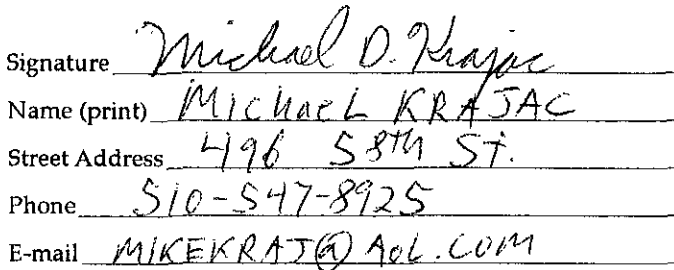 Signature Michael D. Krajac
Name (print) MIChaeL KRAJAC
Street Address 496 58th St.
Phone 510-547-8925
E-mail MIKEKRAJ@AOL.COM